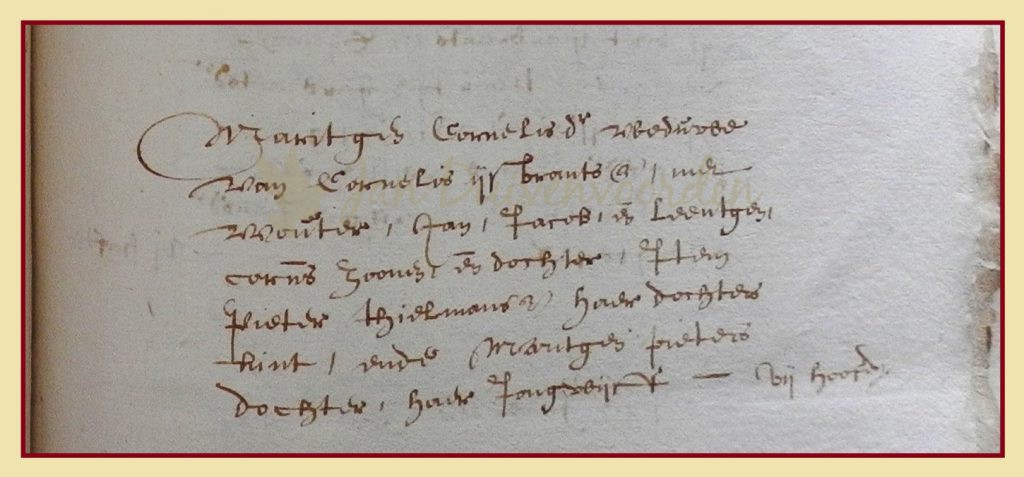 Maritgen Cornelis dr weduwe
van Cornelis ijsbrants, met
Wouter, Jan, Jacob, en Leentgen,
cornes zoonen, en dochter, Item
Pieter thielmans haer dochters
kint, ende Maritgen pieters
dochter, haer Jongwijff — vij hoofd